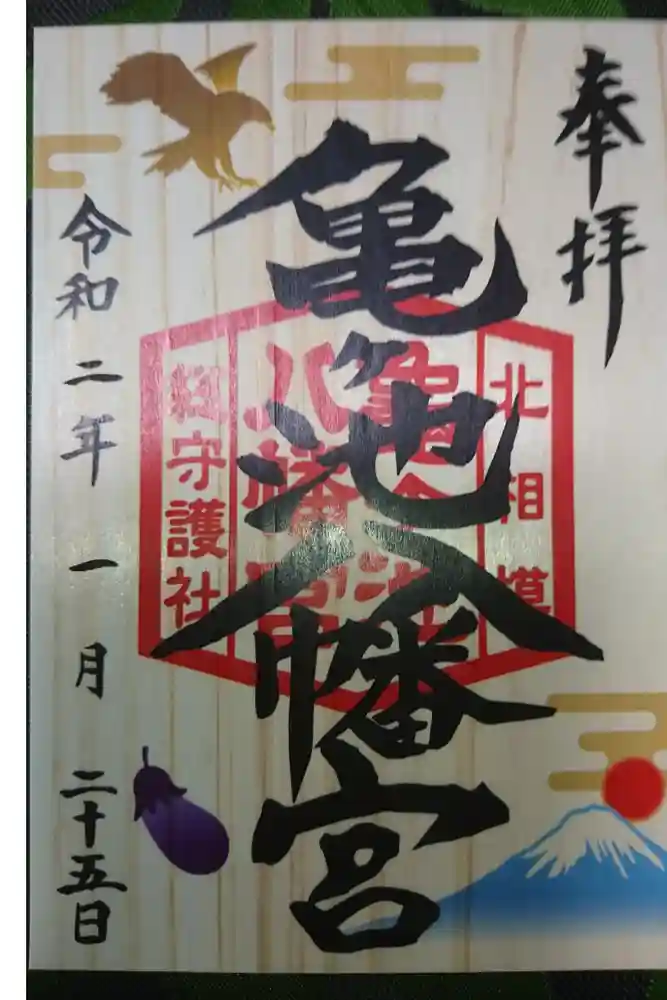 奉拝
北相模
亀ヶ池八幡宮
亀ヶ池
八幡宮
総守護社
令和二年一月二十五日